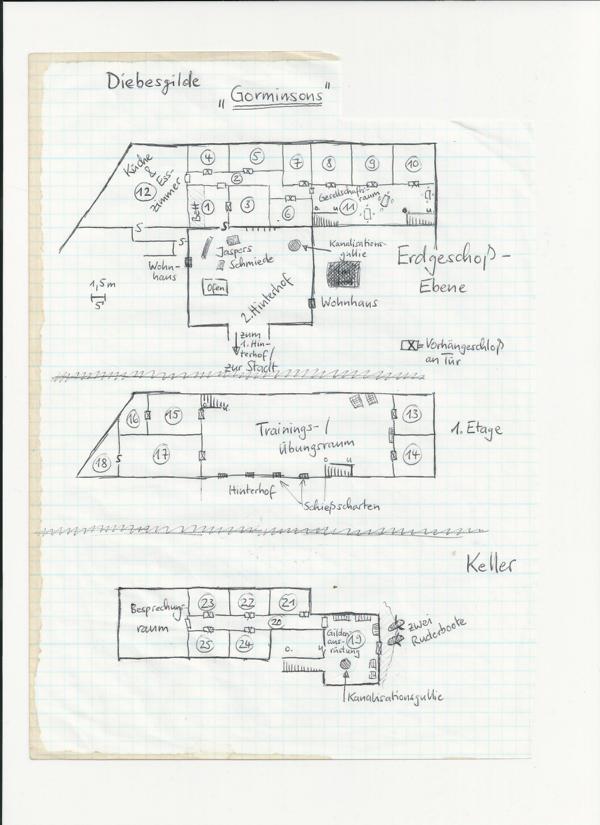 Diebesgilde
„Gorminsons"
Küche
&
Ess-
zimmer
12
4
5
7
8
9
10
2
Gesellschafts-
raum
11
o
u
o
u
Bett
1
3
6
S
S
S
Jaspers
Schmiede
Kanalisations-
gullie
Ofen
2. Hinterhof
Wohn-
haus
Wohnhaus
Erdgeschoß-
Ebene
1,5 m
5'
zum
1. Hin-
terhof/
zur Stadt
X = Vorhängeschloß
an Tür
16
15
Trainings-/
Übungsraum
13
1. Etage
18
S
17
o
u
14
Hinterhof
Schießscharten
Keller
Besprechungs-
raum
23
22
21
20
25
24
o.
u
Gilden
aus-
rüstung
19
zwei
Ruderboote
Kanalisationsgullie